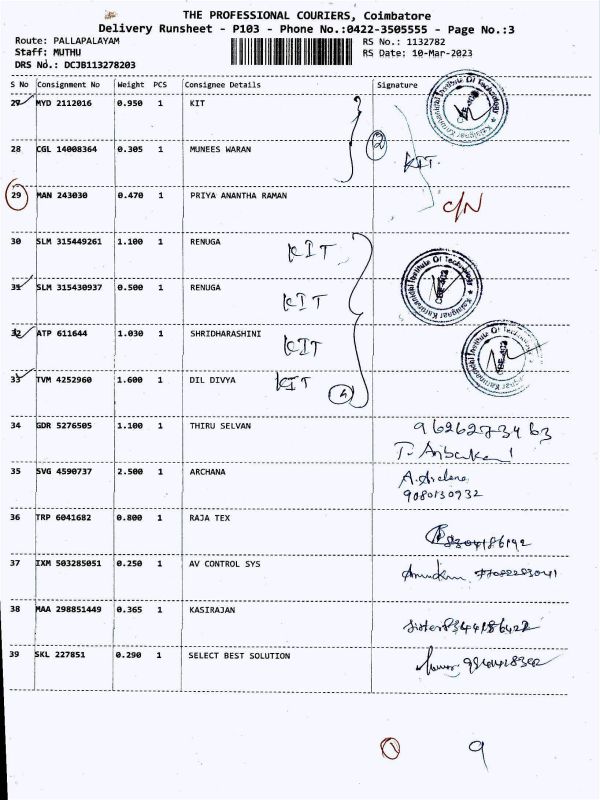 THE PROFESSIONAL COURIERS, Coimbatore
Delivery Runsheet - P103 - Phone No.:0422-3505555 - Page No.:3
Route: PALLAPALAYAM RS No.: 1132782
Staff: MUTHU RS Date: 10-Mar-2023
DRS No.: DCJB113278203
S No Consignment No Weight PCS Consignee Details Signature
27 MYD 2112016 0.950 1 KIT
28 CGL 14008364 0.305 1 MUNEES WARAN 2 KIT.
29 MAN 243030 0.470 1 PRIYA ANANTHA RAMAN C/N
30 SLM 315449261 1.100 1 RENUGA KIT
31 SLM 315430937 0.500 1 RENUGA KIT
32 ATP 611644 1.030 1 SHRIDHARASHINI KIT
33 TVM 4252960 1.600 1 DIL DIVYA KIT 4
34 GDR 5276505 1.100 1 THIRU SELVAN
35 SVG 4590737 2.500 1 ARCHANA
9080130932
36 TRP 6041682 0.800 1 RAJA TEX
37 IXM 503285051 0.250 1 AV CONTROL SYS
38 MAA 298851449 0.365 1 KASIRAJAN
39 SKL 227851 0.290 1 SELECT BEST SOLUTION
1 9